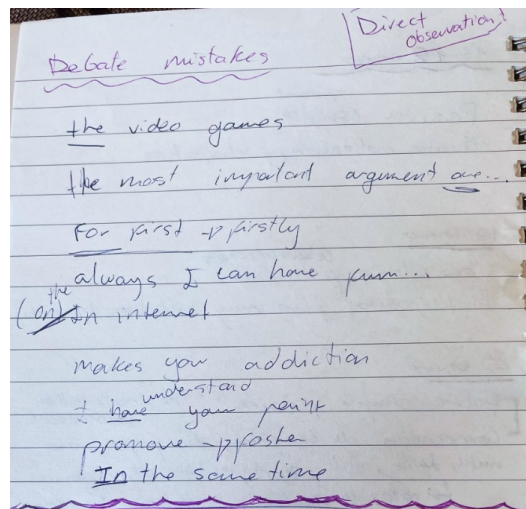 Direct
observation!
Debate mistakes
the video games
the most important argument are...
For first → firstly
always I can have funn...
(on the) In internet
makes you addiction
understand
I have your point
promove → foster
In the same time